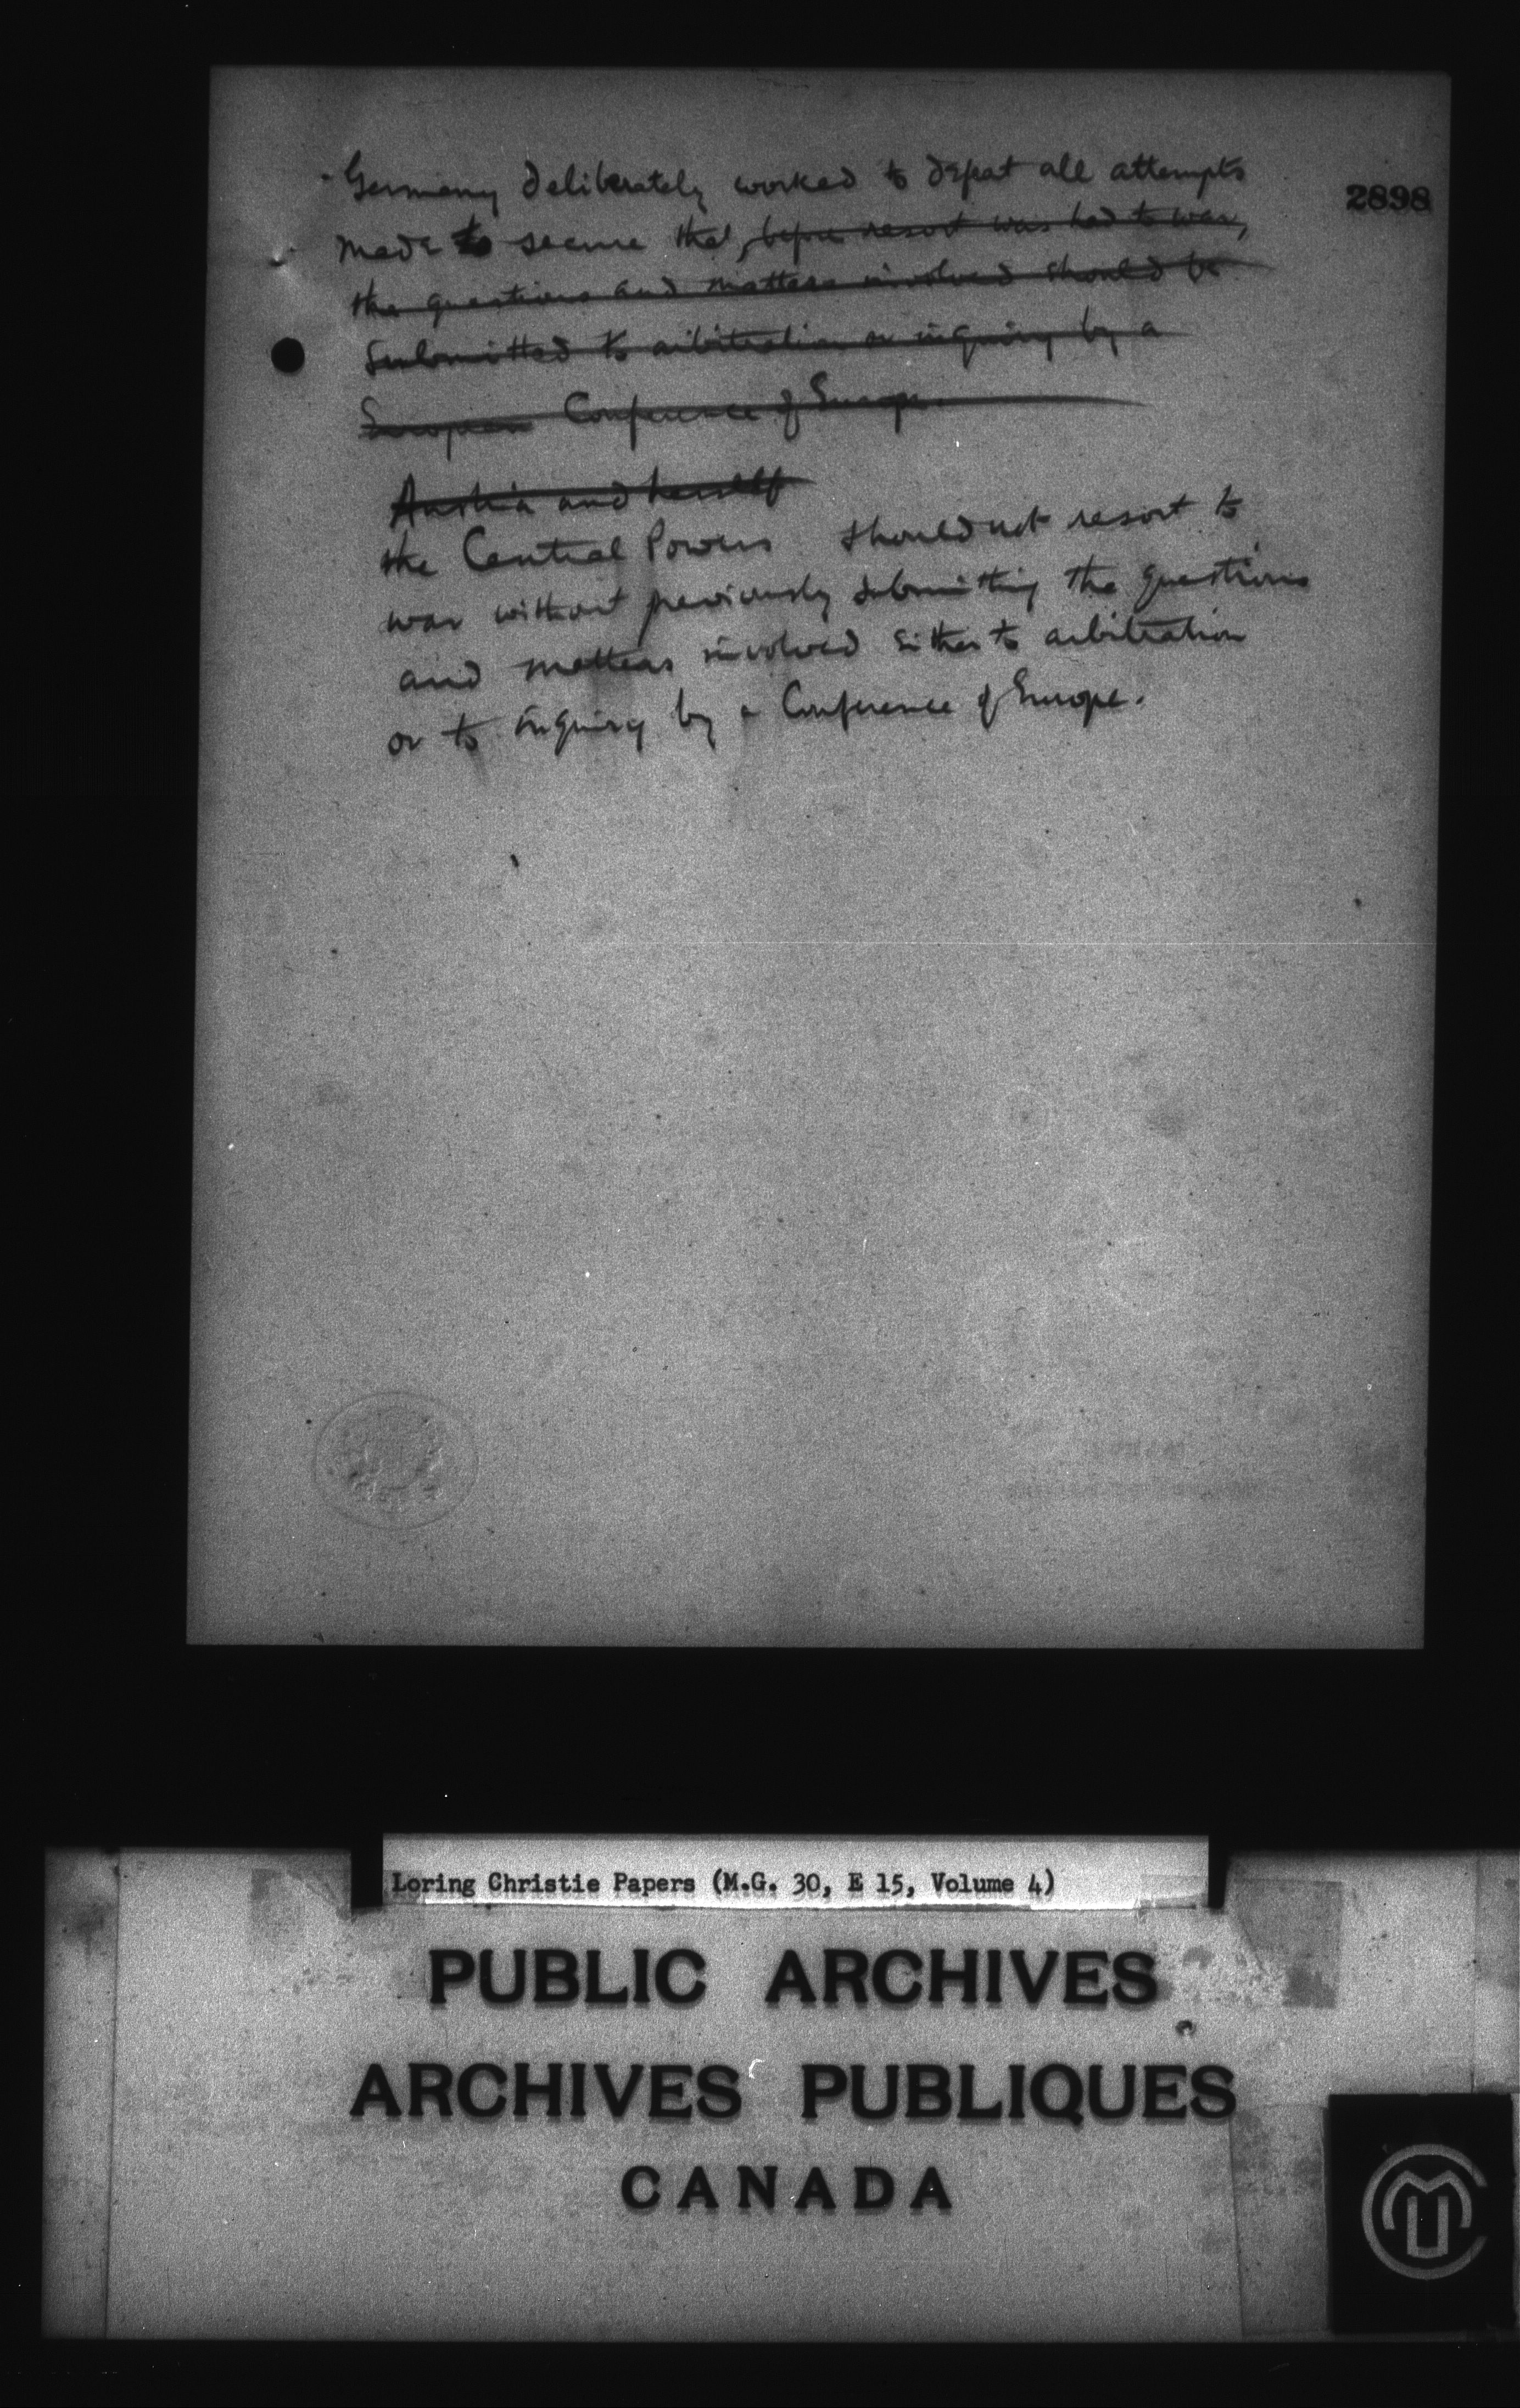 Germany deliberately worked to defeat all attempts
2898
made to secure that, before resort was had to war,
the questions and matters involved should be
submitted to arbitration or inquiry by a
European Conference of Europe.
Austria and herself
the Central Powers should not resort to
war without previously submitting the questions
and matters involved either to arbitration
or to inquiry by a Conference of Europe.
Loring Christie Papers (M.G. 30, E 15, Volume 4)
PUBLIC ARCHIVES
ARCHIVES PUBLIQUES
CANADA